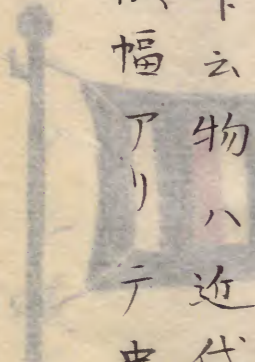 ト云物ハ近代
幅アリテ